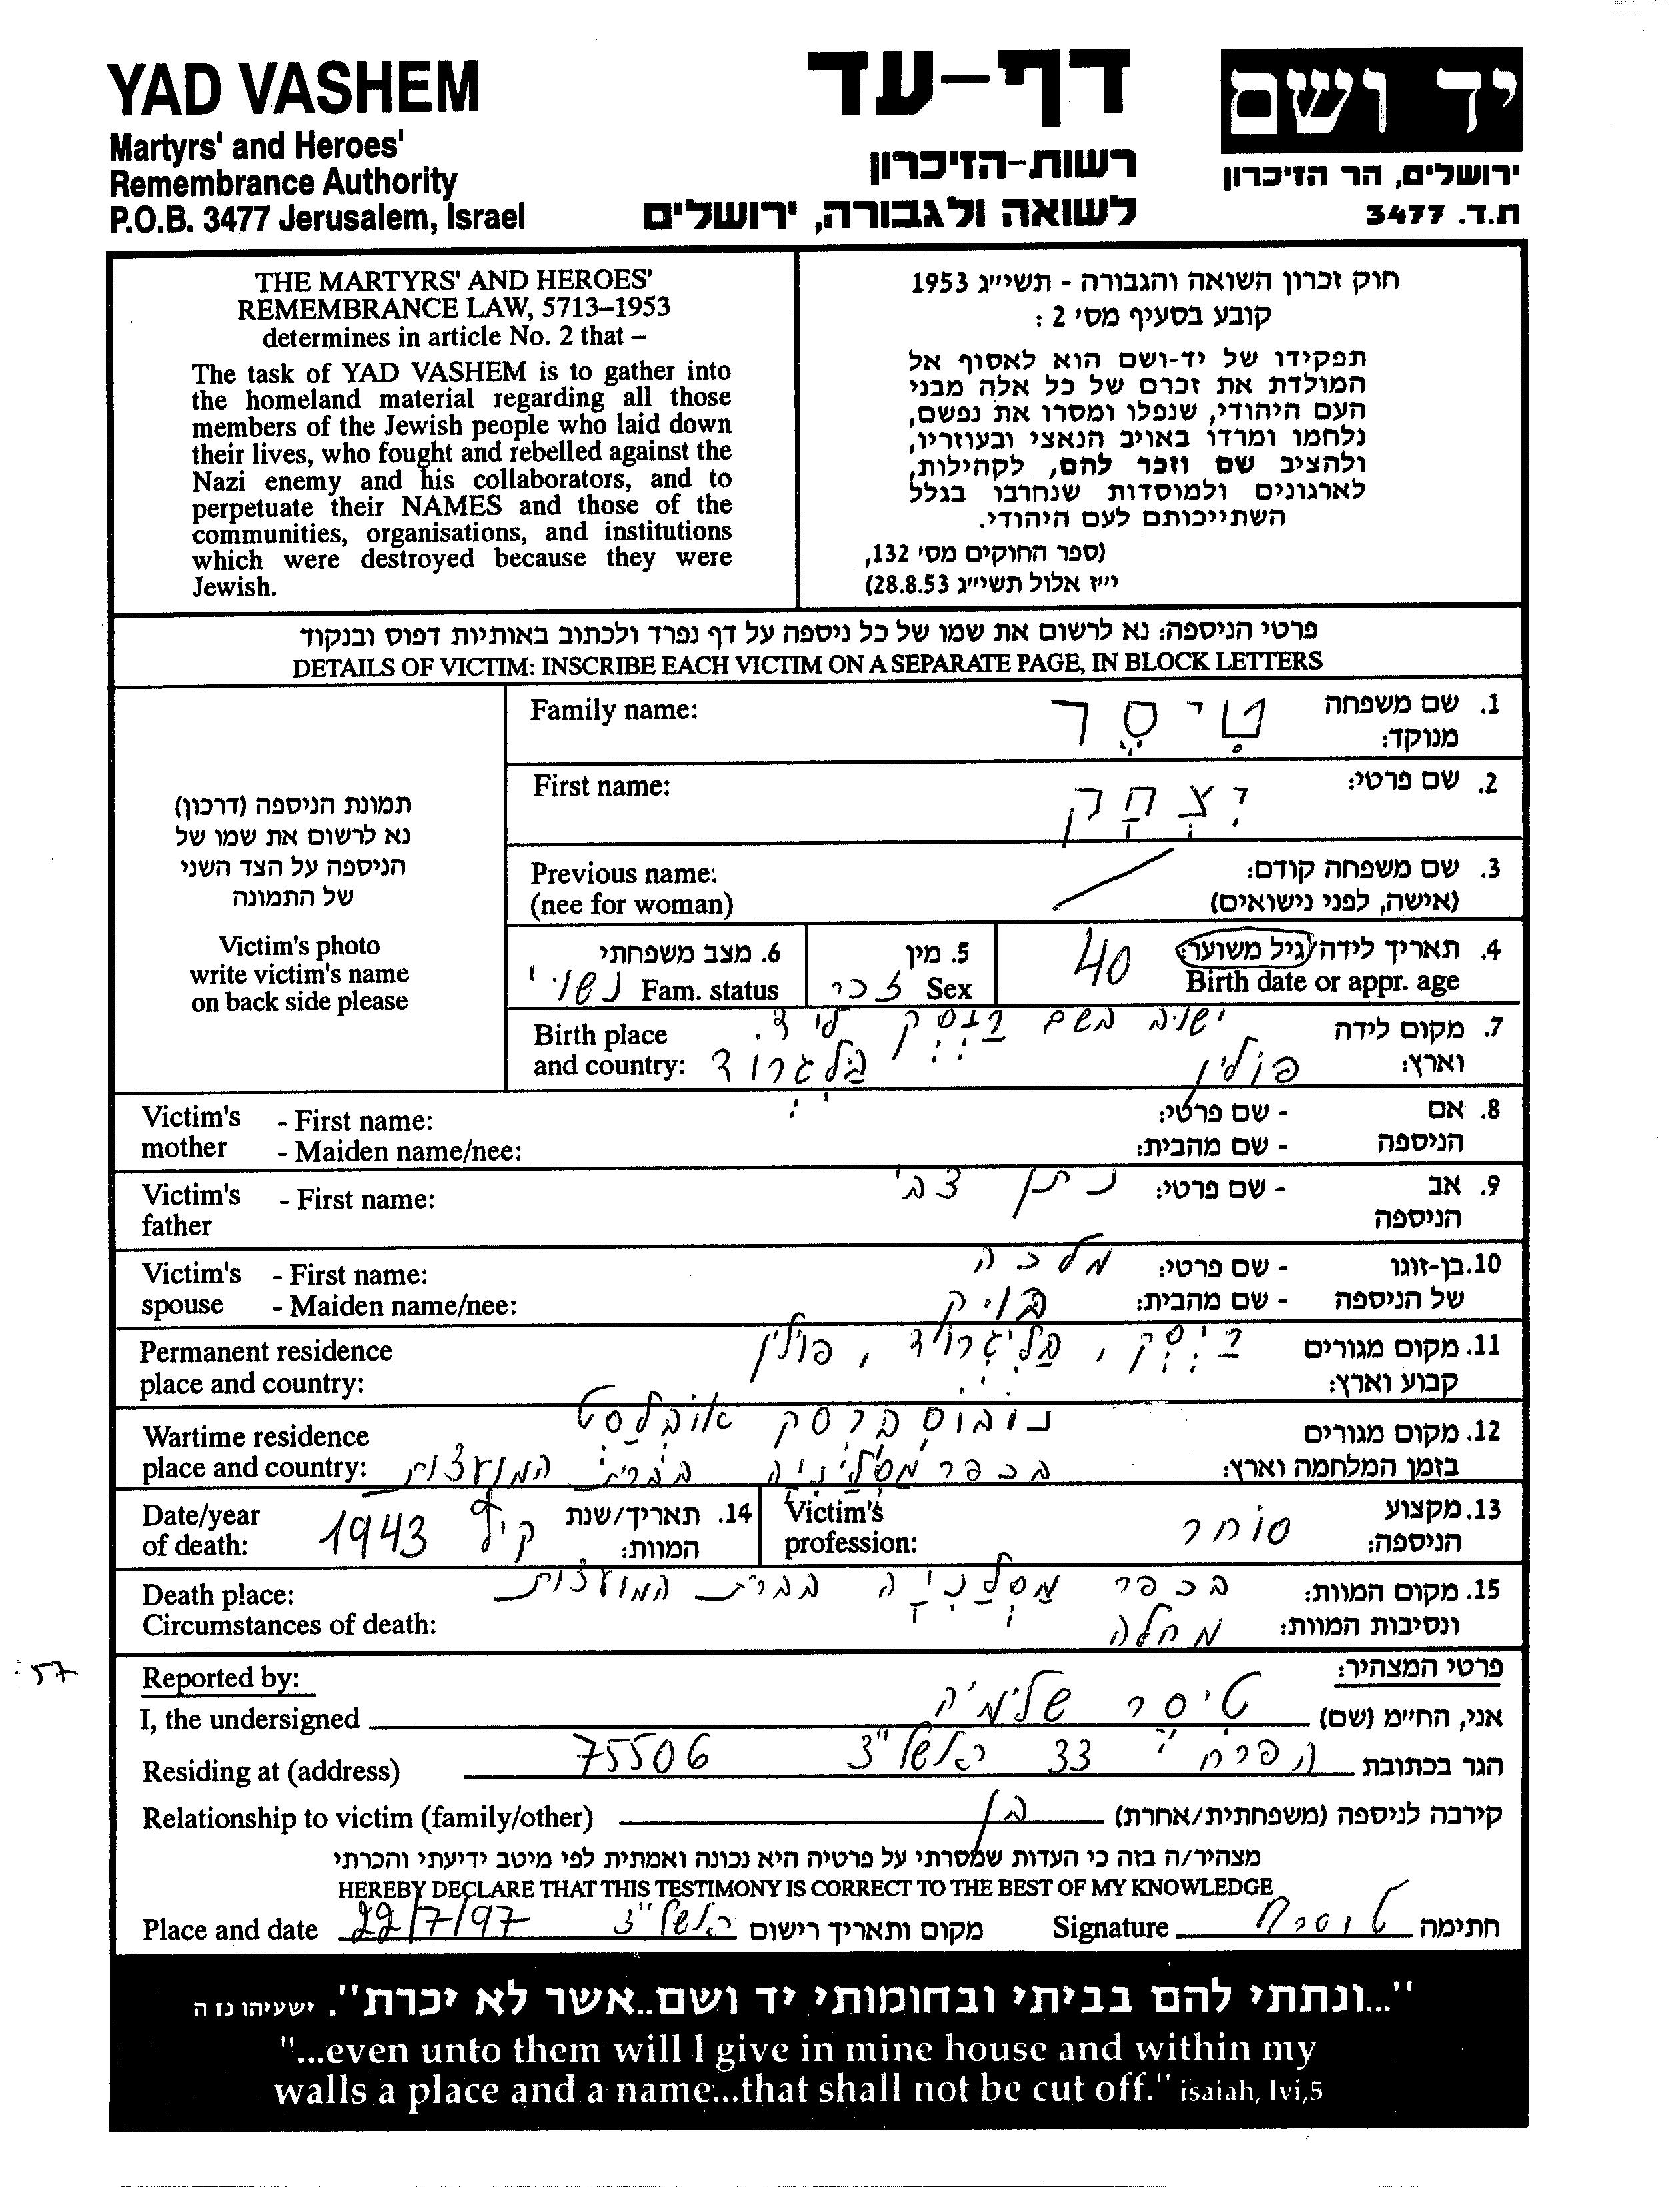 YAD VASHEM
Martyrs' and Heroes'
Remembrance Authority
P.O.B. 3477 Jerusalem, Israel
דף-עד
רשות-הזיכרון
לשואה ולגבורה, ירושלים
יד ושם
ירושלים, הר הזיכרון
ת.ד. 3477
THE MARTYRS' AND HEROES'
REMEMBRANCE LAW, 5713–1953
determines in article No. 2 that –
The task of YAD VASHEM is to gather into
the homeland material regarding all those
members of the Jewish people who laid down
their lives, who fought and rebelled against the
Nazi enemy and his collaborators, and to
perpetuate their NAMES and those of the
communities, organisations, and institutions
which were destroyed because they were
Jewish.
חוק זכרון השואה והגבורה - תשי״ג 1953
קובע בסעיף מס' 2 :
תפקידו של יד-ושם הוא לאסוף אל
המולדת את זכרם של כל אלה מבני
העם היהודי, שנפלו ומסרו את נפשם,
נלחמו ומרדו באויב הנאצי ובעוזריו,
ולהציב שם וזכר להם, לקהילות,
לארגונים ולמוסדות שנחרבו בגלל
השתייכותם לעם היהודי.
(ספר החוקים מס' 132,
י״ז אלול תשי״ג 28.8.53)
פרטי הניספה: נא לרשום את שמו של כל ניספה על דף נפרד ולכתוב באותיות דפוס ובנקוד
DETAILS OF VICTIM: INSCRIBE EACH VICTIM ON A SEPARATE PAGE, IN BLOCK LETTERS
תמונת הניספה (דרכון)
נא לרשום את שמו של
הניספה על הצד השני
של התמונה
Victim's photo
write victim's name
on back side please
1. שם משפחה מנוקד: טִיסֶר Family name:
2. שם פרטי: יִצְחָק First name:
3. שם משפחה קודם: Previous name:
(אישה, לפני נישואים) (nee for woman)
4. תאריך לידה/גיל משוער: 40 5. מין זכר Sex 6. מצב משפחתי נשוי Fam. status
Birth date or appr. age
7. מקום לידה ישוב בשם ליד Birth place
וארץ: פולין בלגרוד and country:
8. אם - שם פרטי: Victim's - First name:
הניספה - שם מהבית: mother - Maiden name/nee:
9. אב - שם פרטי: נתן צבי Victim's - First name:
הניספה father
10. בן-זוגו - שם פרטי: מלכה Victim's - First name:
של הניספה - שם מהבית: spouse - Maiden name/nee:
11. מקום מגורים , , פולין Permanent residence
קבוע וארץ: place and country:
12. מקום מגורים אובלסט Wartime residence
בזמן המלחמה וארץ: בכפר בברית המועצות place and country:
13. מקצוע הניספה: סוחר Victim's profession:
14. תאריך/שנת המוות: קיץ 1943 Date/year of death:
15. מקום המוות: בכפר בברית המועצות Death place:
ונסיבות המוות: מחלה Circumstances of death:
פרטי המצהיר: Reported by:
אני, החי״מ (שם) טיסר שלימה I, the undersigned
הגר בכתובת 33 ראשל"צ 75506 Residing at (address)
קירבה לניספה (משפחתית/אחרת) בן Relationship to victim (family/other)
מצהיר/ה בזה כי העדות שמסרתי על פרטיה היא נכונה ואמתית לפי מיטב ידיעתי והכרתי
HEREBY DECLARE THAT THIS TESTIMONY IS CORRECT TO THE BEST OF MY KNOWLEDGE
Place and date 22/7/97 ראשל"צ מקום ותאריך רישום Signature חתימה
"...ונתתי להם בביתי ובחומותי יד ושם..אשר לא יכרת". ישעיהו נז ה
"...even unto them will I give in mine house and within my
walls a place and a name...that shall not be cut off." isaiah, lvi,5